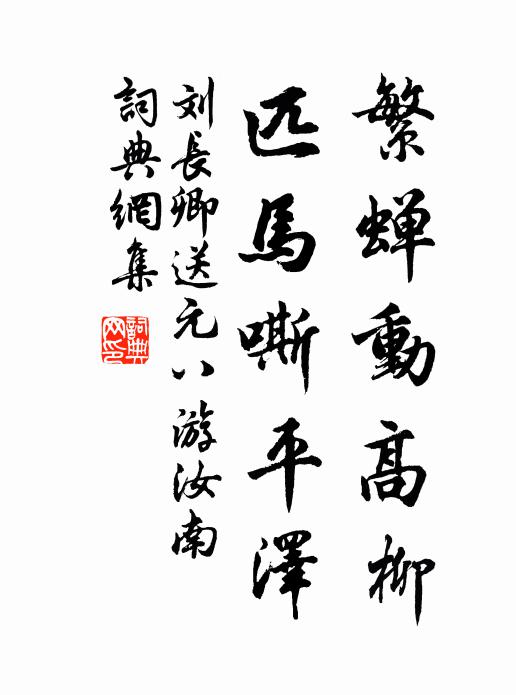 繁蝉動高柳
匹馬嘶平澤
刘長卿送元八游汝南
詞典網集
詞典网印